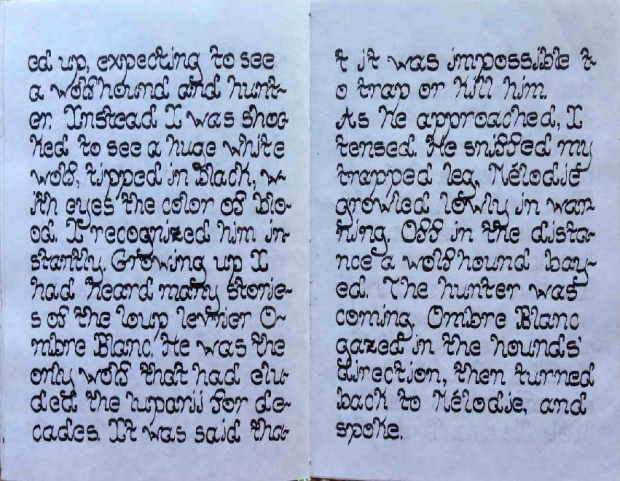 ed up, expecting to see
a wolfhound and hunt-
er. Instead I was shoc
ked to see a huge white
wolf, tipped in Black, w-
ith eyes the color of blo-
od. I recognized him in-
stantly. Growing up I
had heard many storie-
s of the loup levrier O-
mbre Blanc. He was the
only wolf that had elu-
ded the luparii for de-
cades. It was said tha-
t it was impossible t-
o trap or kill him.
As he approached, I
tensed. He sniffed my
trapped leg, Mélodie
growled lowly in war-
ning. Off in the dista-
nce a wolfhound bay-
ed. The hunter was
coming. Ombre Blanc
gazed in the hounds'
direction, then turned
back to Mélodie, and
spoke.